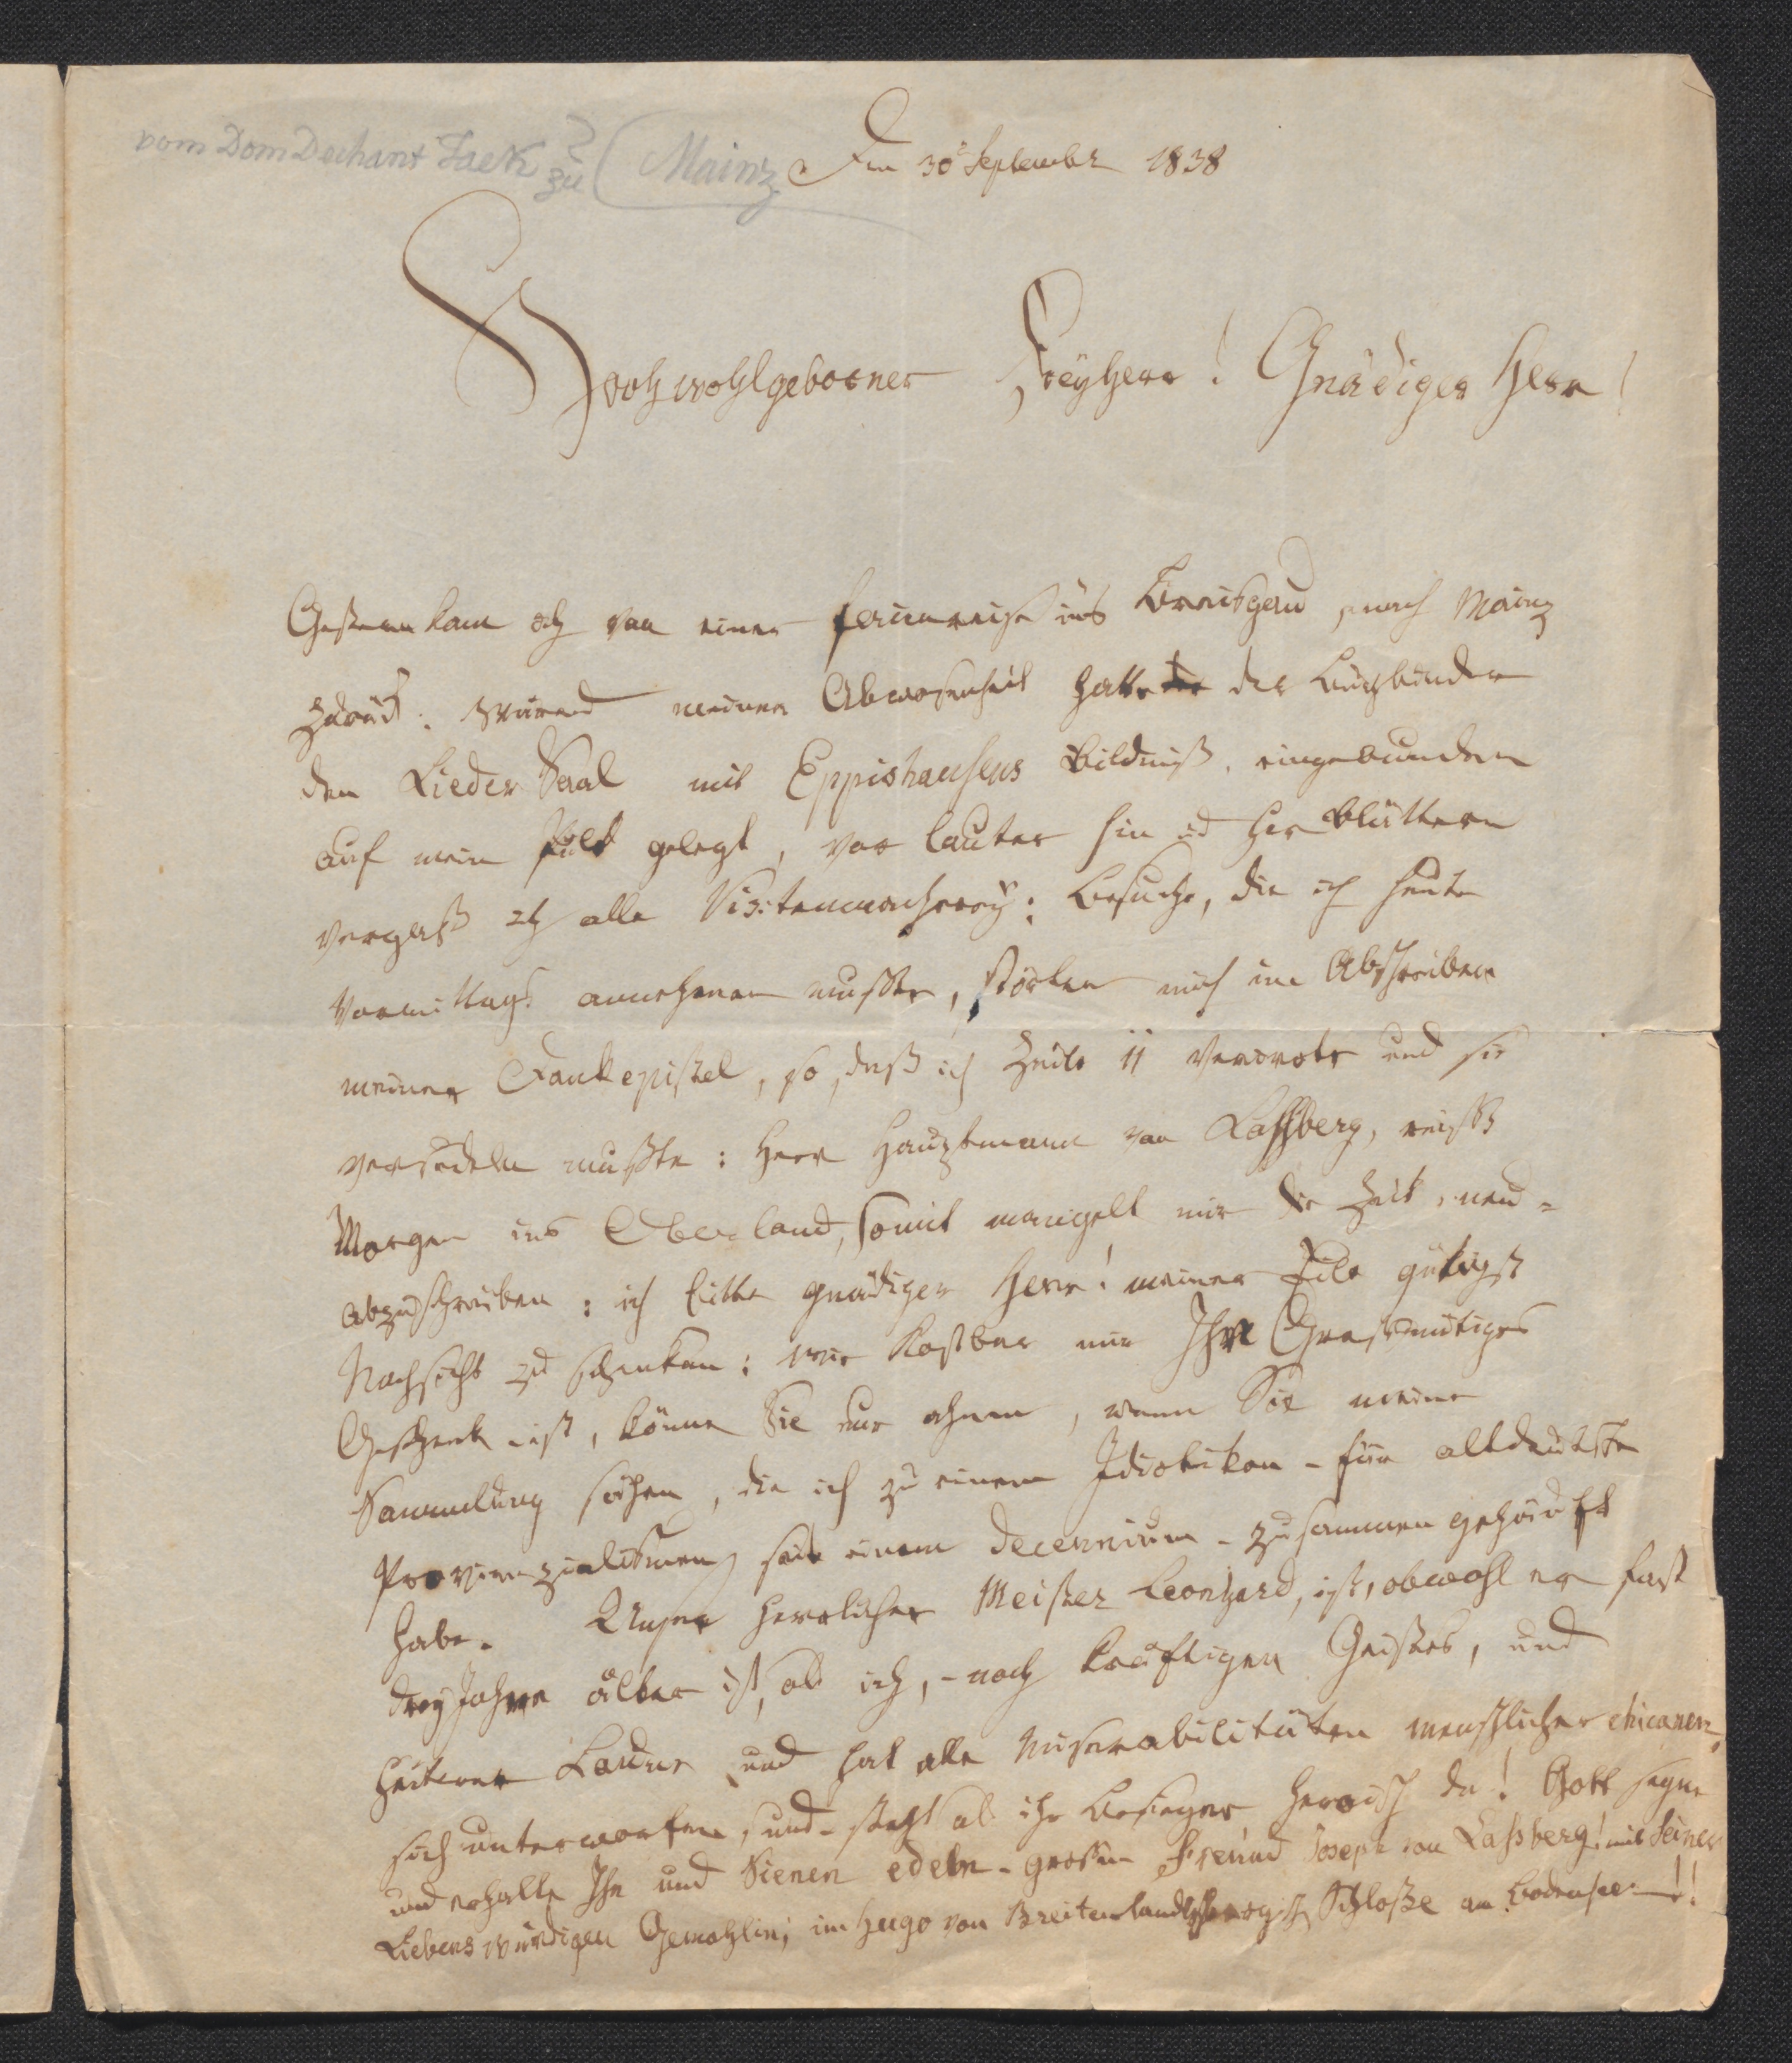 vom Dom Dechant Jaek zu (Mainz
Den 30t September 1838
Hochwohlgeborner Freyherr! Gnädiger Herr!
Gestern kam ich von einer ins Breisgau, nach Mainz
zurück: während meiner Abwesenheit hatte der Buchbinder
den Lieder Saal mit Eppishausens Bildniß, eingebunden
auf mein Pult gelegt, vor lauter hin ud her blättern
vergaß ich alle Visitenmacherey: Besuche, die ich heute
Vormittags annehmen mußte, störten mich im Abschreiben
meiner Dankepistel, so, daß ich Zeile 11 und sie
versudeln mußte: Herr Hauptmann von Laßberg, reißt
Morgen ins Oberland, somit mangelt mir die Zeit, neu=
abzuschreiben: ich bitte gnädiger Herr! meiner Eile gütigst
Nachsicht zu schenken: wie kostbar mir Ihr Großmütiges
Geschenk ist, könne Sie nur ahnen, wenn Sie meine
Sammlung sähen, die ich zu einem Idiotikon - für altdeutsche
Provinzialismen, seit einem decennium - zusammen gehäuft
habe. Unser herrlicher Meister Leonhard, ist, obwohl er fast
drey Jahre älter ist, als ich, - noch kräftigen Geistes, und
heiterer Laune und hat alle Miserabilitäten menschlicher chicanen,
sich unterworfen, und - steht als ihr Besieger heroisch da! Gott segne
und erhalte Ihn und Sienen edeln - großen Freund Joseph von Laßberg! mit Seiner
Liebenswürdigen Gemahlin; im Hugo von Schloße am Bodensee!!